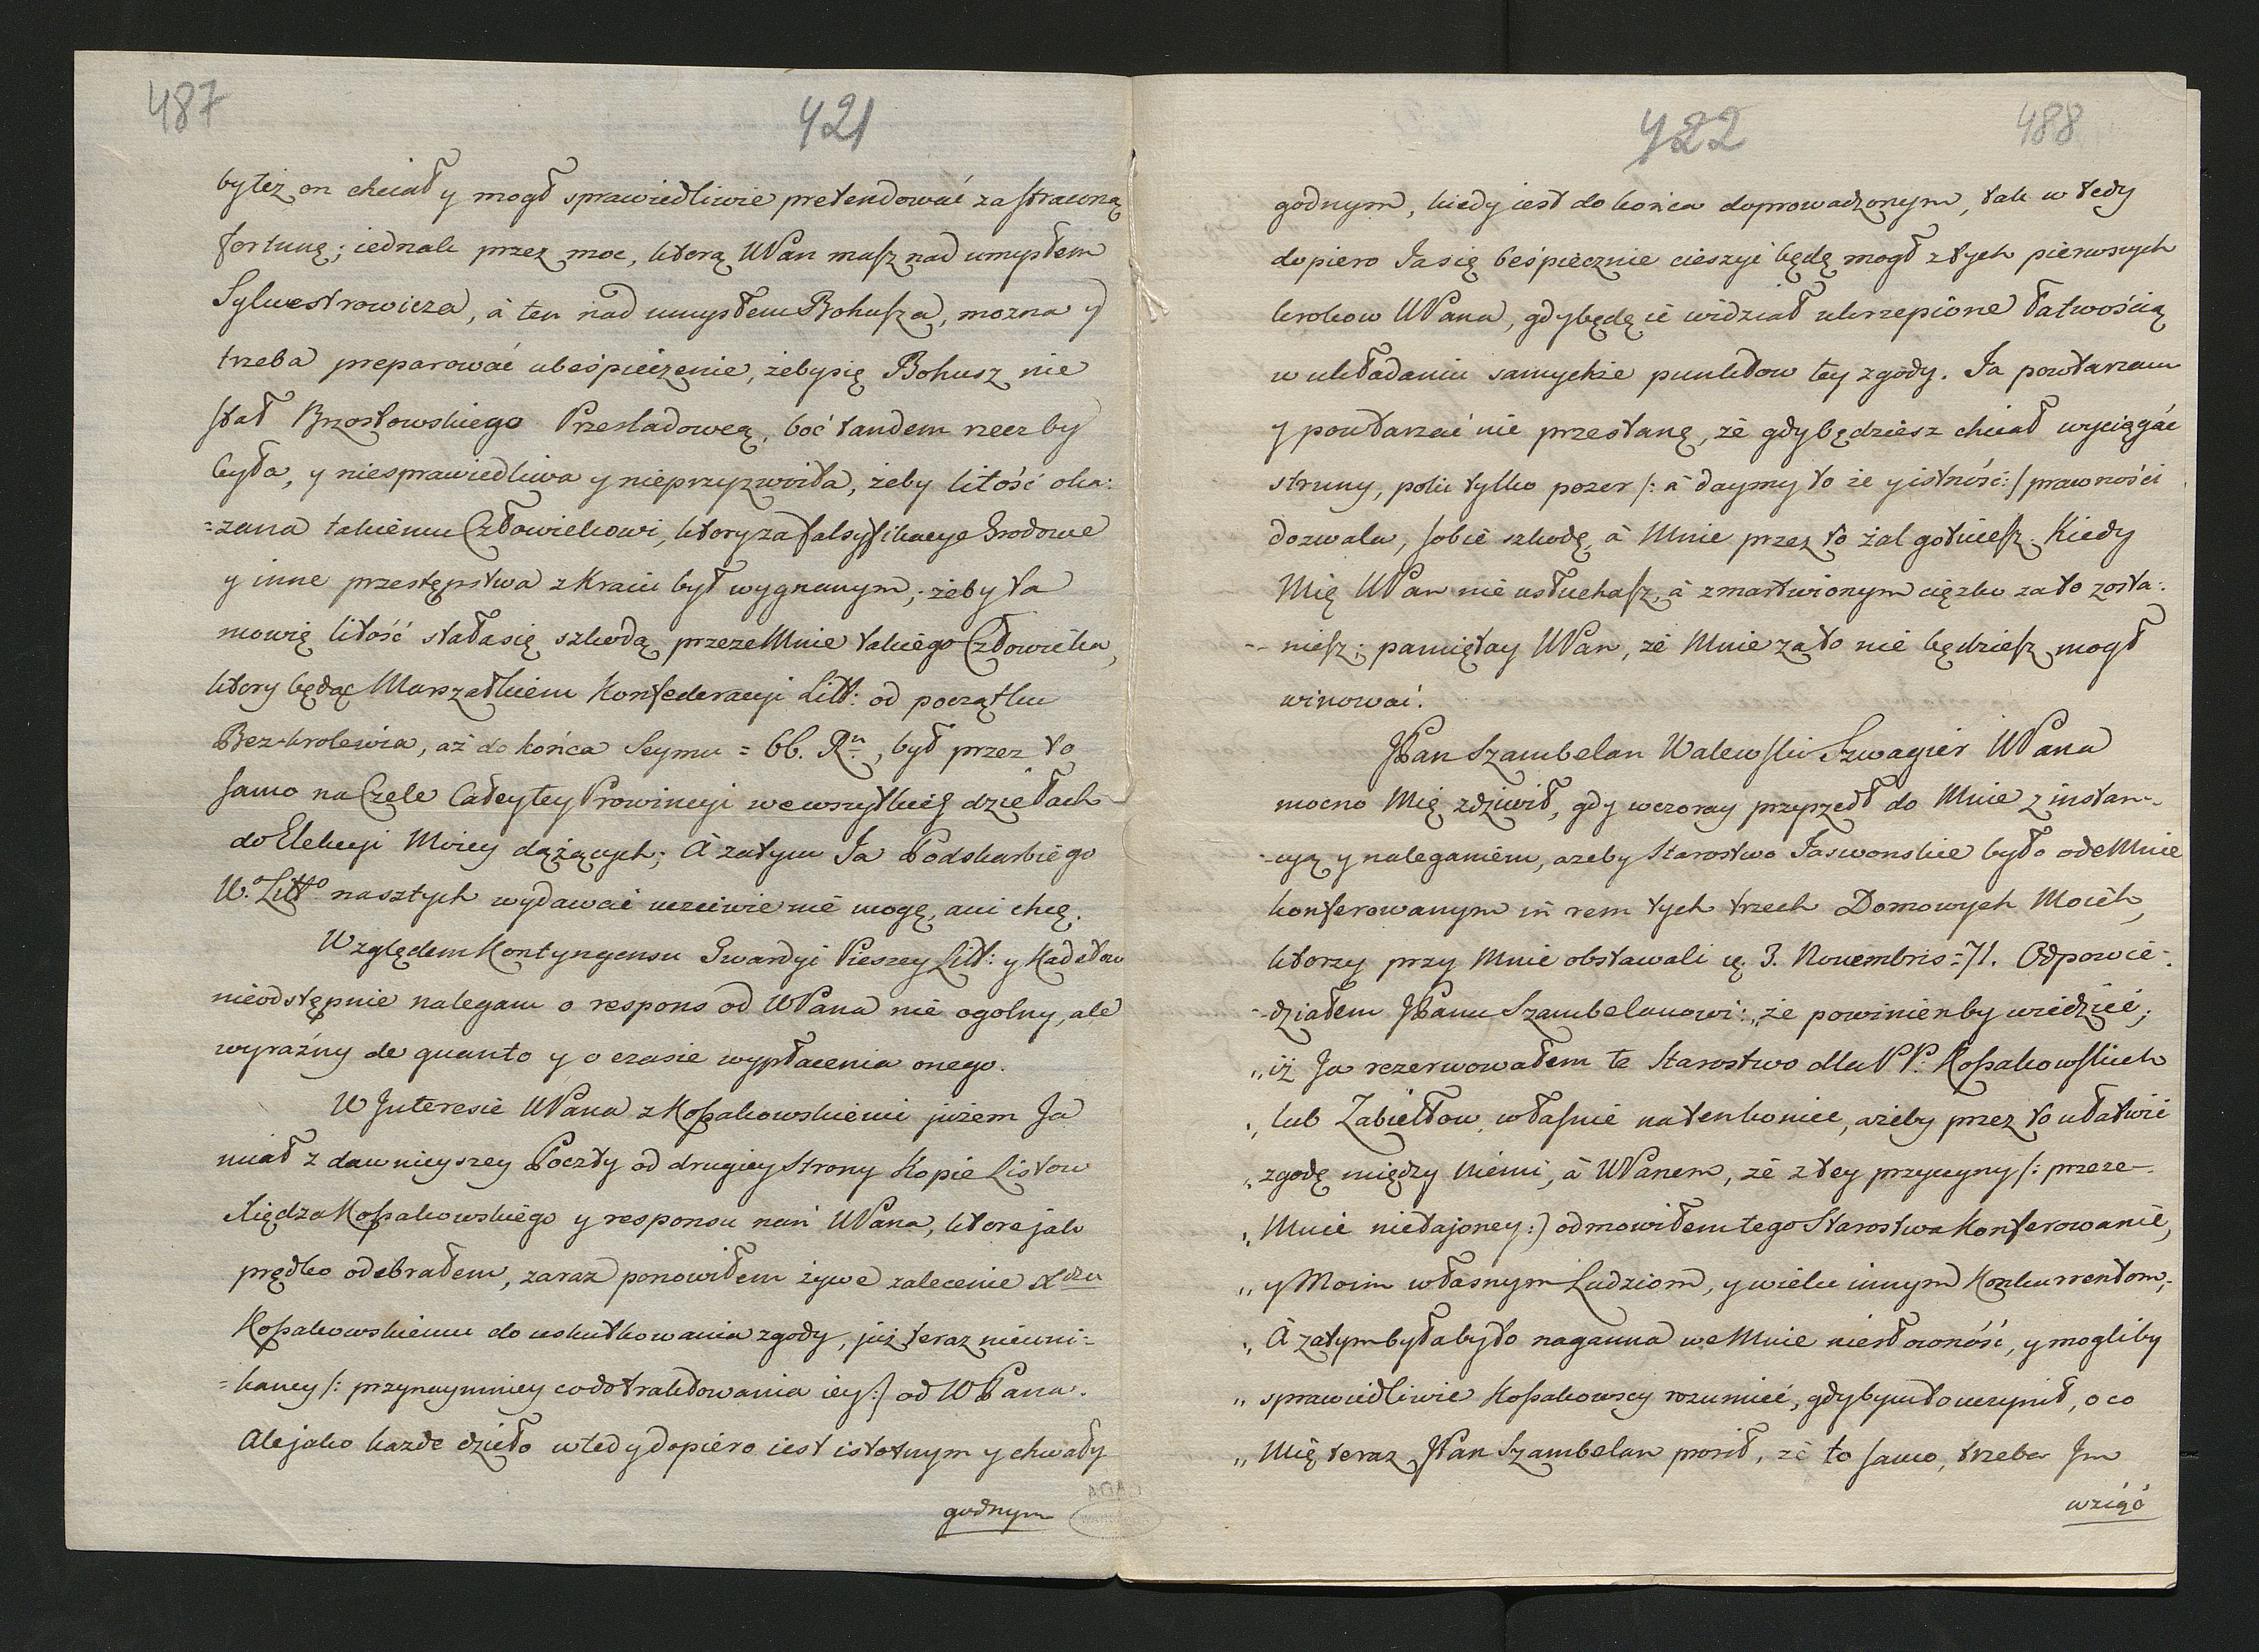 487
421
by też on chciał y mogł sprawiedliwie pretendować za straconą
fortunę; iednak przez moc, ktorą WPan masz nad umysłem
Sylwestrowicza, à ten nad umysłem Bohusza, mozna y
trzeba preparować ubeśpieczenie, żeby się Bohusz nie
stał Brzostowskiego Przesladowcą, boć tandem rzecz by
była, y niesprawiedliwa y nieprzyzwoita, żeby litość oka:
=zana takiemu Człowiekowi, ktory za falsyfikacye Grodowe
y inne przestępstwa z Kraiu był wygnanym, żeby ta
mowię litość stała się szkodą przezeMnie takiego Człowieka,
ktory będąc Marszałkiem Konfederacyi Litt: od początku
Bez-krolewia, aż do końca Seymu = 66. Rn, był przez to
samo na Czele Całey tey Prowincyi we wszytkich dziełach
do Elekcyi Moiey dążących; À zatym Ja Podskarbiego
W. Litto na sztych wydawać uczciwie nie mogę, ani chcę.
Względem Kontyngensu Gwardyi Pieszey Litt: y Kadetow
nieodstępnie nalegam o respons od WPana nie ogolny, ale
wyraźny de quanto y o czasie wypłacenia onego.
W Interesie WPana z Kossakowskiemi jużem Ja
miał z dawnieyszey Poczty od drugiey Strony Kopie Listow
Xiędza Kossakowskiego y responsu nań WPana, ktore jak
prędko odebrałem, zaraz ponowiłem żywe zalecenie Xdzu
Kossakowskiemu do uskutkowania zgody, już teraz nieuni-
=kaney /: przynaymniey co do traktowania iey :/ od WPana.
Ale jako kazde dzieło wtedy dopiero iest istotnym y chwały
godnym
422
488
godnym, kiedy iest do końca doprowadzonym, tak w tedy
dopiero Ja się beśpiecznie cieszyć będę mogł z tych pierwszych
krokow WPana, gdy będę ie widział ukrzepione łatwością
w układaniu samychże punktow tey zgody. Ja powtarzam
y powtarzać nie przestanę, że gdy będziesz chciał wyciągać
struny, poki tylko pozor /: à daymy to że y istność :/ prawności
dozwala, sobie szkodę, à Mnie przez to żal gotuiesz. Kiedy
Mię WPan nie usłuchasz, à zmartwionym cięzko za to zosta:
-- niesz; pamiętay WPan, że Mnie za to nie będziesz mogł
winować.
JPan Szambelan Walewski Szwagier WPana
mocno Mię zdziwił, gdy wczoray przyszedł do Mnie z instan-
-cyą y naleganiem, azeby Starostwo Jaswonskie było odeMnie
konferowanym in rem tych trzech Domowych Moich,
ktorzy przy Mnie obstawali d. 3. Novembris =71. Odpowie-
-działem JPanu Szambelanowi: „że powinienby wiedzieć,
„iż Ja rezerwowałem te Starostwo dla PP. Kossakowskich
„lub Zabiełłow, własnie na ten koniec, ażeby przez to ułatwić
„zgodę między Niemi, à WPanem, że z tey przyczyny /: przeze-
„Mnie nietajoney :/ odmowiłem tego Starostwa konferowanie,
„y Moim własnym Ludziom, y wielu innym Konkurrentom,
„À zatym byłaby to naganna we Mnie niesłowność, y mogliby
„sprawiedliwie Kossakowscy rozumieć, gdybym to uczynił, o co
„Mię teraz JPan Szambelan prosił, że to samo, trzeba Im
wziąć